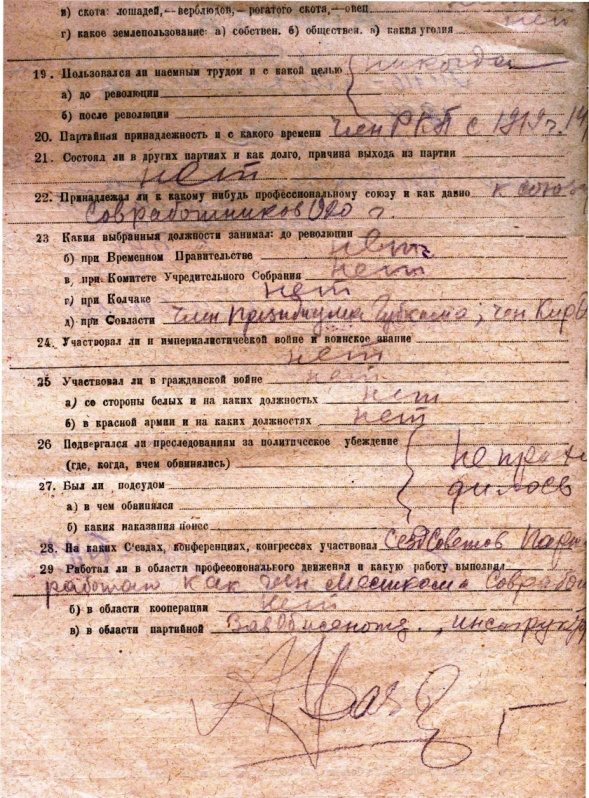 в) скота: лошадей,—верблюдов,—рогатого скота,—овец
нет
г) какое землепользование: а) собствен. б) обществен. в) какия угодия
19. Пользовался ли наемным трудом и с какой целью никогда
а) до революции
б) после революции
20. Партийная принадлежность и с какого времени член РКП с 1919 г.
21. Состоял ли в других партиях и как долго, причина выхода из партии
нет
22. Принадлежал ли к какому нибудь профессиональному союзу и как давно к союзу
Совработников с г.
23 Какия выбранный должности занимал: до революции нет
б) при Временном Правительстве нет
в, при Комитете Учредительного Собрания нет
г) при Колчаке нет
д) при Совласти Член Президиума Губкома, член
24. Участвовал ли и империалистической войне и воинское звание
нет
25 Участвовал ли в гражданской войне нет
а) со стороны белых и на каких должностьх нет
б) в красной армии и на каких должностях нет
26 Подвергался ли преследованиям за политическое убеждение
(где, когда, вчем обвинялись)
27. Был ли подсудом
не прихо
дилось
а) в чем обвинялся
б) какия наказания понес
28. На каких С'ездах, конференциях, конгрессах участвовал Советов
29 Работал ли в области профессионального движения и какую работу выполнял
работаю как член месткома Соврабо
б) в области кооперации нет
в) в области партийной инструктор